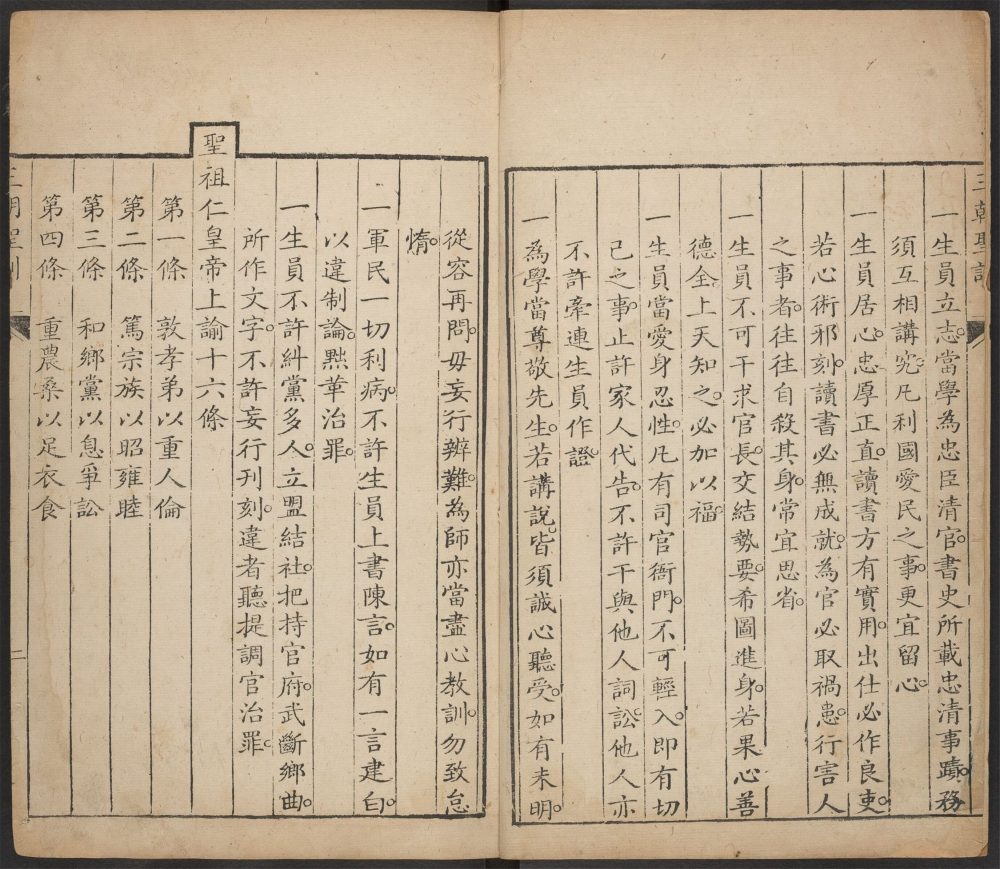 三朝聖訓
一生員立志當學為忠臣清官書史所載忠清事蹟務
須互相講究凡利國愛民之事更宜留心
一生員居心忠厚正直讀書方有實用出仕必作良吏
若心術邪刻讀書必無成就為官必取禍患行害人
之事者往往自殺其身常宜思省
一生員不可干求官長交結勢要希圖進身若果心善
德全上天知之必加以福
一生員當愛身忍性凡有司官衙門不可輕入即有切
己之事止許家人代告不許干與他人詞訟他人亦
不許牽連生員作證
一為學當尊敬先生若講說皆須誠心聽受如有未明
從容再問毋妄行辨難為師亦當盡心教訓勿致怠
惰
一軍民一切利病不許生員上書陳言如有一言建白
以違制論黜革治罪
一生員不許糾黨多人立盟結社把持官府武斷鄉曲
所作文字不許妄行刊刻違者聽提調官治罪
聖祖仁皇帝上諭十六條
第一條 敦孝弟以重人倫
第二條 篤宗族以昭雍睦
第三條 和鄉黨以息爭訟
第四條 重農桑以足衣食
三朝聖訓 二